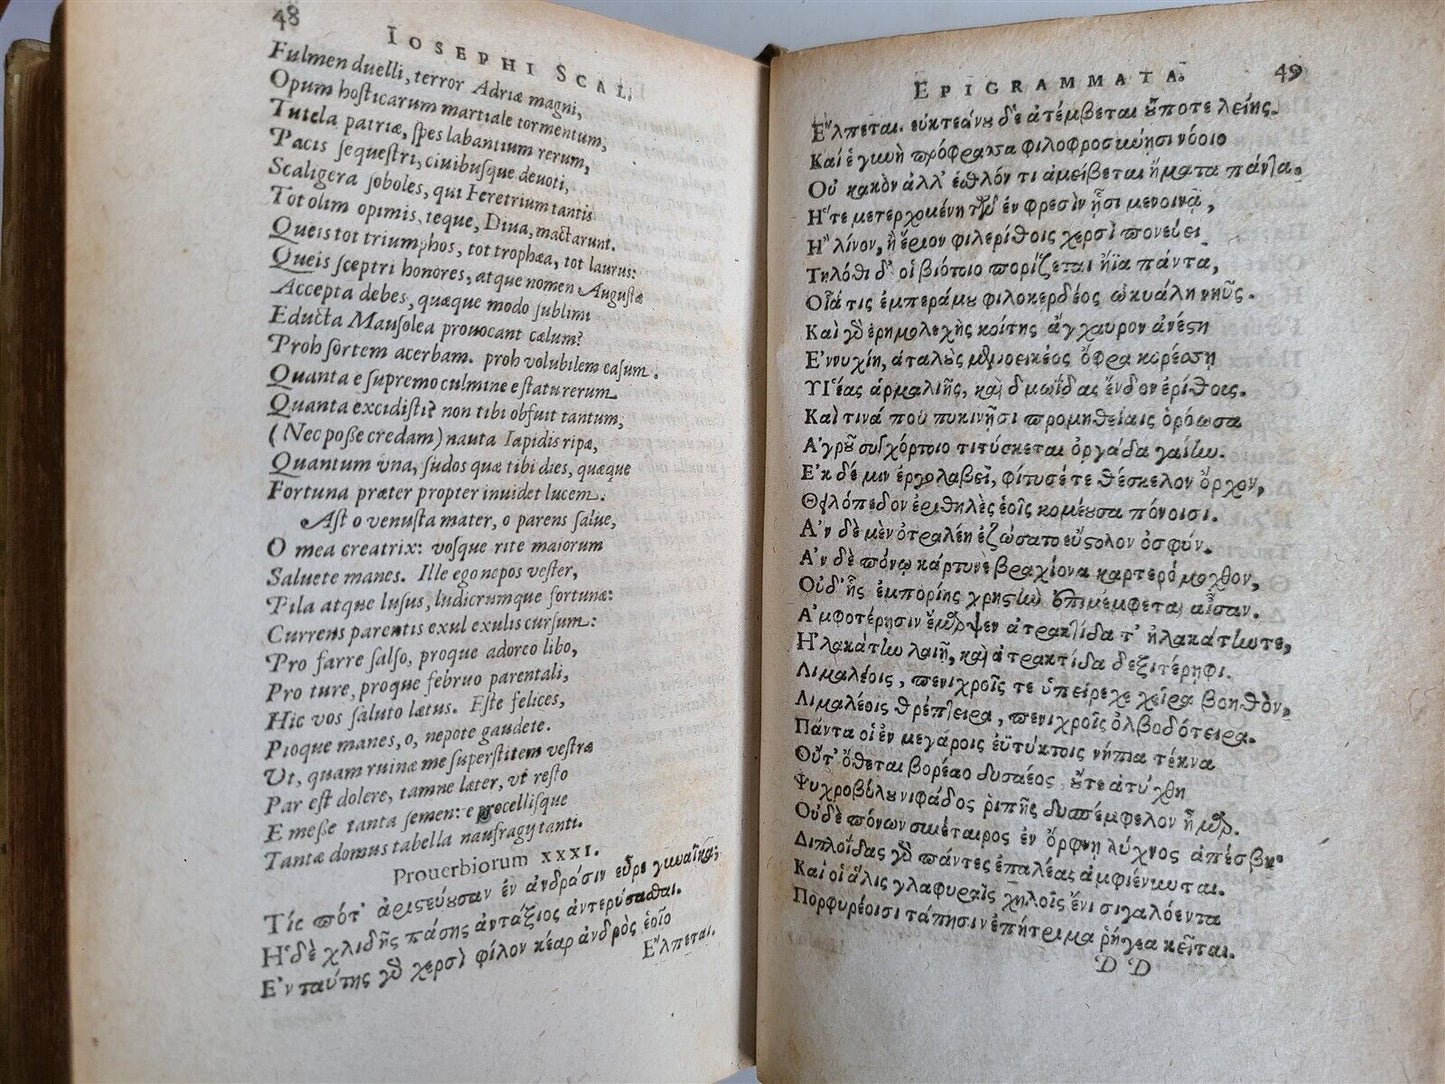 48
IOSEPHI SCAL.
Fulmen duelli, terror Adriæ magni,
Opum hoſticarum martiale tormentum,
Tutela patriæ, ſpes labantium rerum,
Pacis ſequeſtri, ciuibuſque deuoti,
Scaligera ſoboles, qui Feretrium tantis
Tot olim opimis, teque, Diua, mactarunt.
Queis tot triumphos, tot trophæa, tot laurus:
Queis ſceptri honores, atque nomen Auguſtæ
Accepta debes, quæque modo ſublimi
Educta Mauſolea prouocant cælum?
Proh ſortem acerbam. proh volubilem caſum.
Quanta e ſupremo culmine eſtatu rerum
Quanta excidiſti? non tibi obfuit tantum,
(Nec poße credam) nauta Iapidis ripæ,
Quantum vna, ſudos quæ tibi dies, quæque
Fortuna præter propter inuidet lucem.
Aſt o venuſta mater, o parens ſalue,
O mea creatrix: voſque rite maiorum
Saluete manes. Ille ego nepos veſter,
Pila atque luſus, ludicrumque fortunæ:
Currens parentis exul exulis curſum:
Pro farre ſalſo, proque adoreo libo,
Pro ture, proque februo parentali,
Hic vos ſaluto lætus. Eſte felices,
Pioque manes, o, nepote gaudete.
Vt, quam ruinæ me ſuperſtitem veſtræ
Par eſt dolere, tam ne læter, vt reſto
E meße tanta ſemen: e procelliſque
Tantæ domus tabella naufragij tanti.
Prouerbiorum XXXI.
Τίς πότ' ἀριστεύουσαν ἐν ἀνδράσιν εὗρε γυναῖκα;
Ἡ δὲ χλιδῆς πάσης ἀντάξιος ἀντερύσασθαι.
Ἐν ταύτης γὸ χερσὶ φίλον κέαρ ἀνδρὸς ἑοῖο
Ἔλπεται.
EPIGRAMMATA. 49
Ἔλπεται. εὐκτεάνου δὲ ἀτέμβεται οὔποτε λείης.
Καὶ ἑ γυνὴ πρόφρασσα φιλοφροσύνῃσι νόοιο
Οὐ κακὸν ἀλλ' ἐσθλόν τι ἀμείβεται ἤματα πάντα.
Ἥτε μετερχομένη τῷ ἐν φρεσὶν ᾗσι μενοινᾷ,
Ἢ λίνον, ἢ ἔριον φιλερίθοις χερσὶ πονεύει
Τηλόθι δ' οἱ βιότοιο πορίζεται ἤϊα πάντα,
Οἷά τις ἐμπεράμου φιλοκερδέος ὠκυάλη νηῦς.
Καὶ γὸ ἐρημολεχὴς κοίτης ἀγχαῦρον ἀνέστη
Ἐννυχίη, ἀταλοὺς μενοεικέος ὄφρα κορέσσῃ
Υἱέας ἁρμαλιῆς, καὶ δμωΐδας ἔνδον ἐρίθοις.
Καὶ τινά που πυκινῇσι προμηθείαις ὁρόωσα
Ἀγροῦ συγχόρτοιο τιτύσκεται ὀργάδα γαίην.
Ἐκ δέ μιν ἐργολαβεῖ, φίτυσέ τε θέσκελον ὄρχον,
Θειλόπεδον ἐριθηλὲς ἑοῖς κομέουσα πόνοισι.
Ἂν δὲ μὲν ὀτραλέη ἐζώσατο εὔστολον ὀσφύν.
Ἂν δὲ πόνῳ κάρτυνε βραχίονα καρτερόμοχθον,
Οὐδ' ἧς ἐμπορίης χρηστὴν ἐπιμέμφεται αἶσαν.
Ἀμφοτέρῃσιν ἔμαρψεν ἀτρακτίδα τ' ἠλακάτην τε,
Ἠλακάτην λαιῇ, καὶ ἀτρακτίδα δεξιτέρηφι.
Λιμαλέοις, πενιχροῖς τε ὑπείρεχε χεῖρα βοηθὸν,
Λιμαλέοις θρέπτειρα, πενιχροῖς ὀλβοδότειρα.
Πάντα οἱ ἐν μεγάροις ἐϋτύκτοις νήπια τέκνα
Οὔτ' ὄθεται βορέαο δυσαέος, οὔτε ἀτύχθη
Ψυχροβόλου νιφάδος ῥιπῆς δυσπέμφελον ἦμαρ.
Οὐδὲ πόνων συνέταιρος ἐν ὄρφνῃ λύχνος ἀπέσβη.
Διπλοΐδας γὸ πάντες ἐπαλέας ἀμφιέννυται.
Καὶ οἱ ἅλις γλαφυραῖς χηλοῖς ἔνι σιγαλόεντα
Πορφυρέοισι τάπησιν ἐπήτριμα ῥήγεα κεῖται.
D D